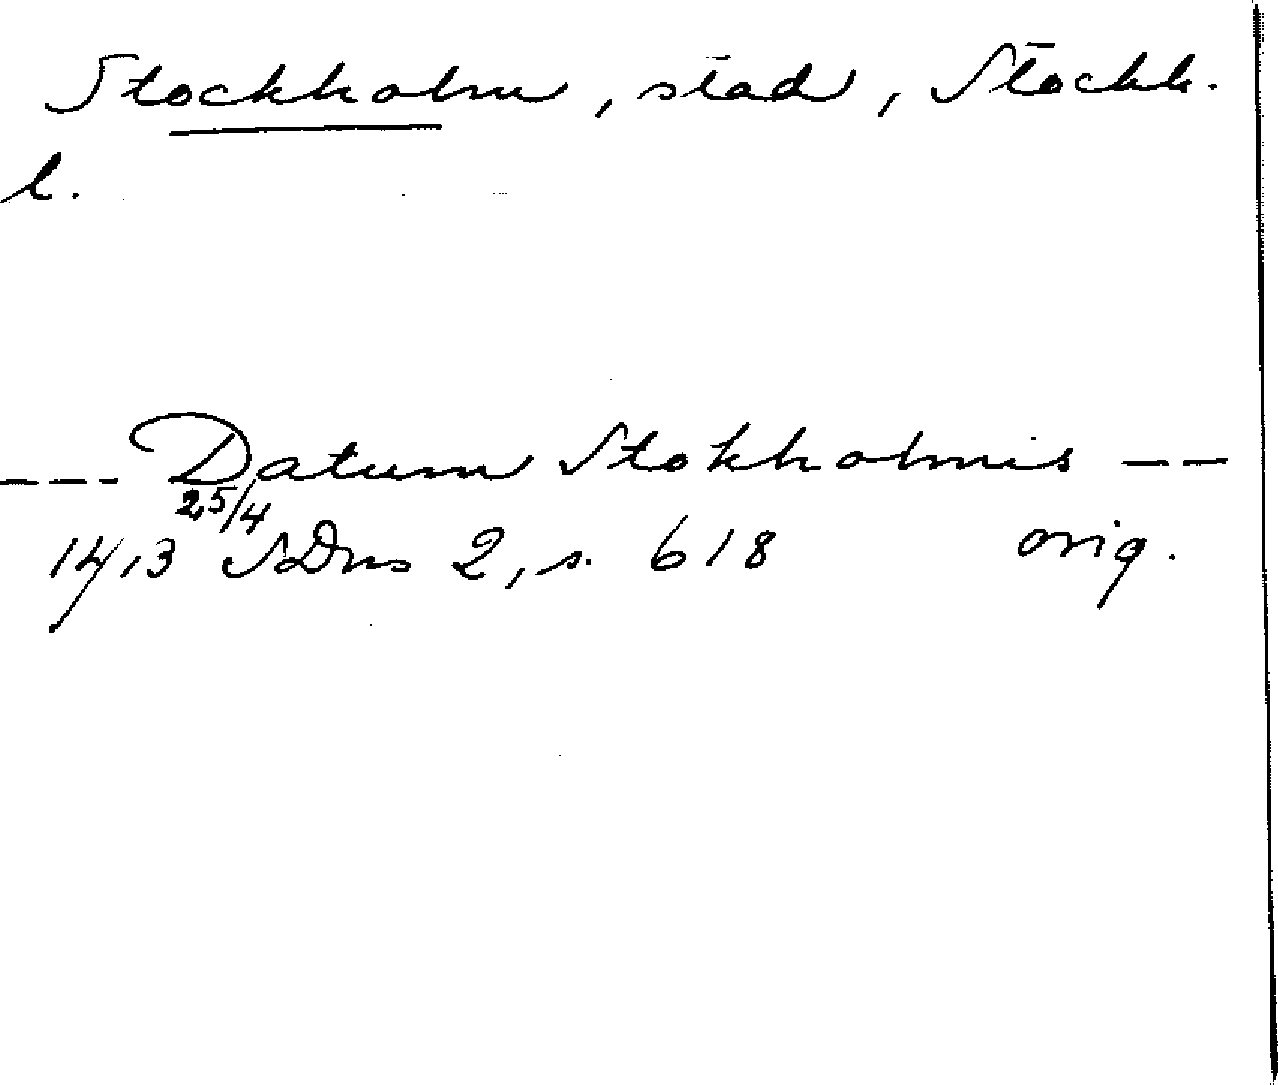 Stockholm, stad, Stockh.
l.
--- Datum Stokholmis --
1413 25/4 SDns 2, s. 618 orig.